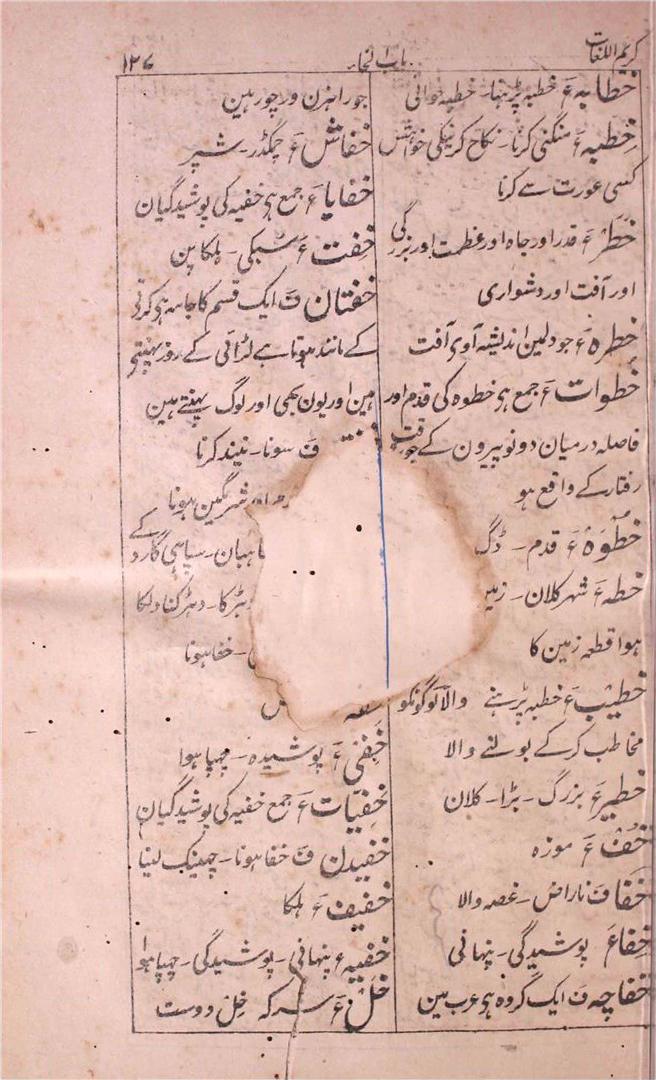 کریم اللغات
باب الخا
۱۲۷
خطابه ع خطبہ پڑہنا۔ خطبہ خوانی
خِطبه ع منگنی کرنا۔ نکاح کرنیکی خواہش
کسی عورت سے کرنا
خطر ع قدر اور جاہ اور عظمت اور بزرگی
اور آفت اور دشواری
خطرہ ع جو دلمین اندیشہ آوی آفت
خُطوات ع جمع ہی خطوہ کی قدم اور
فاصلہ درمیان دونو پیرون کے جو وقت
رفتار کے واقع ہو
خُطوَہ ع قدم۔ ڈگ
خطہ ع شہر کلان۔ زمین
ہوا قطعہ زمین کا
خطیب ع خطبہ پڑہنے والا لوگونکو
مخاطب کر کے بولنے والا
خطیر ع بزرگ۔ بڑا۔ کلان
خُف ع موزہ
خَفا ف ناراض۔ غصہ والا
خِفا ع پوشیدگی۔ پنہانی
خفاچہ ف ایک گروہ ہی عرب مین
جو راہزن و چور ہین
خفاش ع چمگڈر۔ شپر
خفایا ع جمع ہی خفیہ کی پوشیدگیان
خفت ع سبکی۔ ہلکا پن
خفتان ف ایک قسم کا جامہ ہی کرتی
کے مانند ہوتا ہے لڑائی کے روز پہنتی
ہین اور یون بھی اور لوگ پہنتے ہین
ف سونا۔ نیند کرنا
شرمگین ہونا
سپاہی گارد کے
دہڑکنا دلکا
۔ خفا ہونا
خَفِی ع پوشیدہ۔ چھپا ہوا
خفیات ع جمع خفیہ کی پوشیدگیان
خفیدن ف خفا ہونا۔ چھینک لینا
خفیف ع ہلکا
خفیہ ع پنہانی۔ پوشیدگی۔ چھپا ہوا
خل ع سرکہ خِل دوست